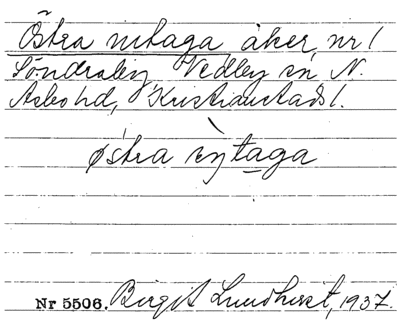 Östra nytaga åker, nr 1
Söndraby Vedby sn N.
Åsbo hd, Kristianstads l.
østra nytaga
Nr 5506. Birgit Lundqvist, 1937.